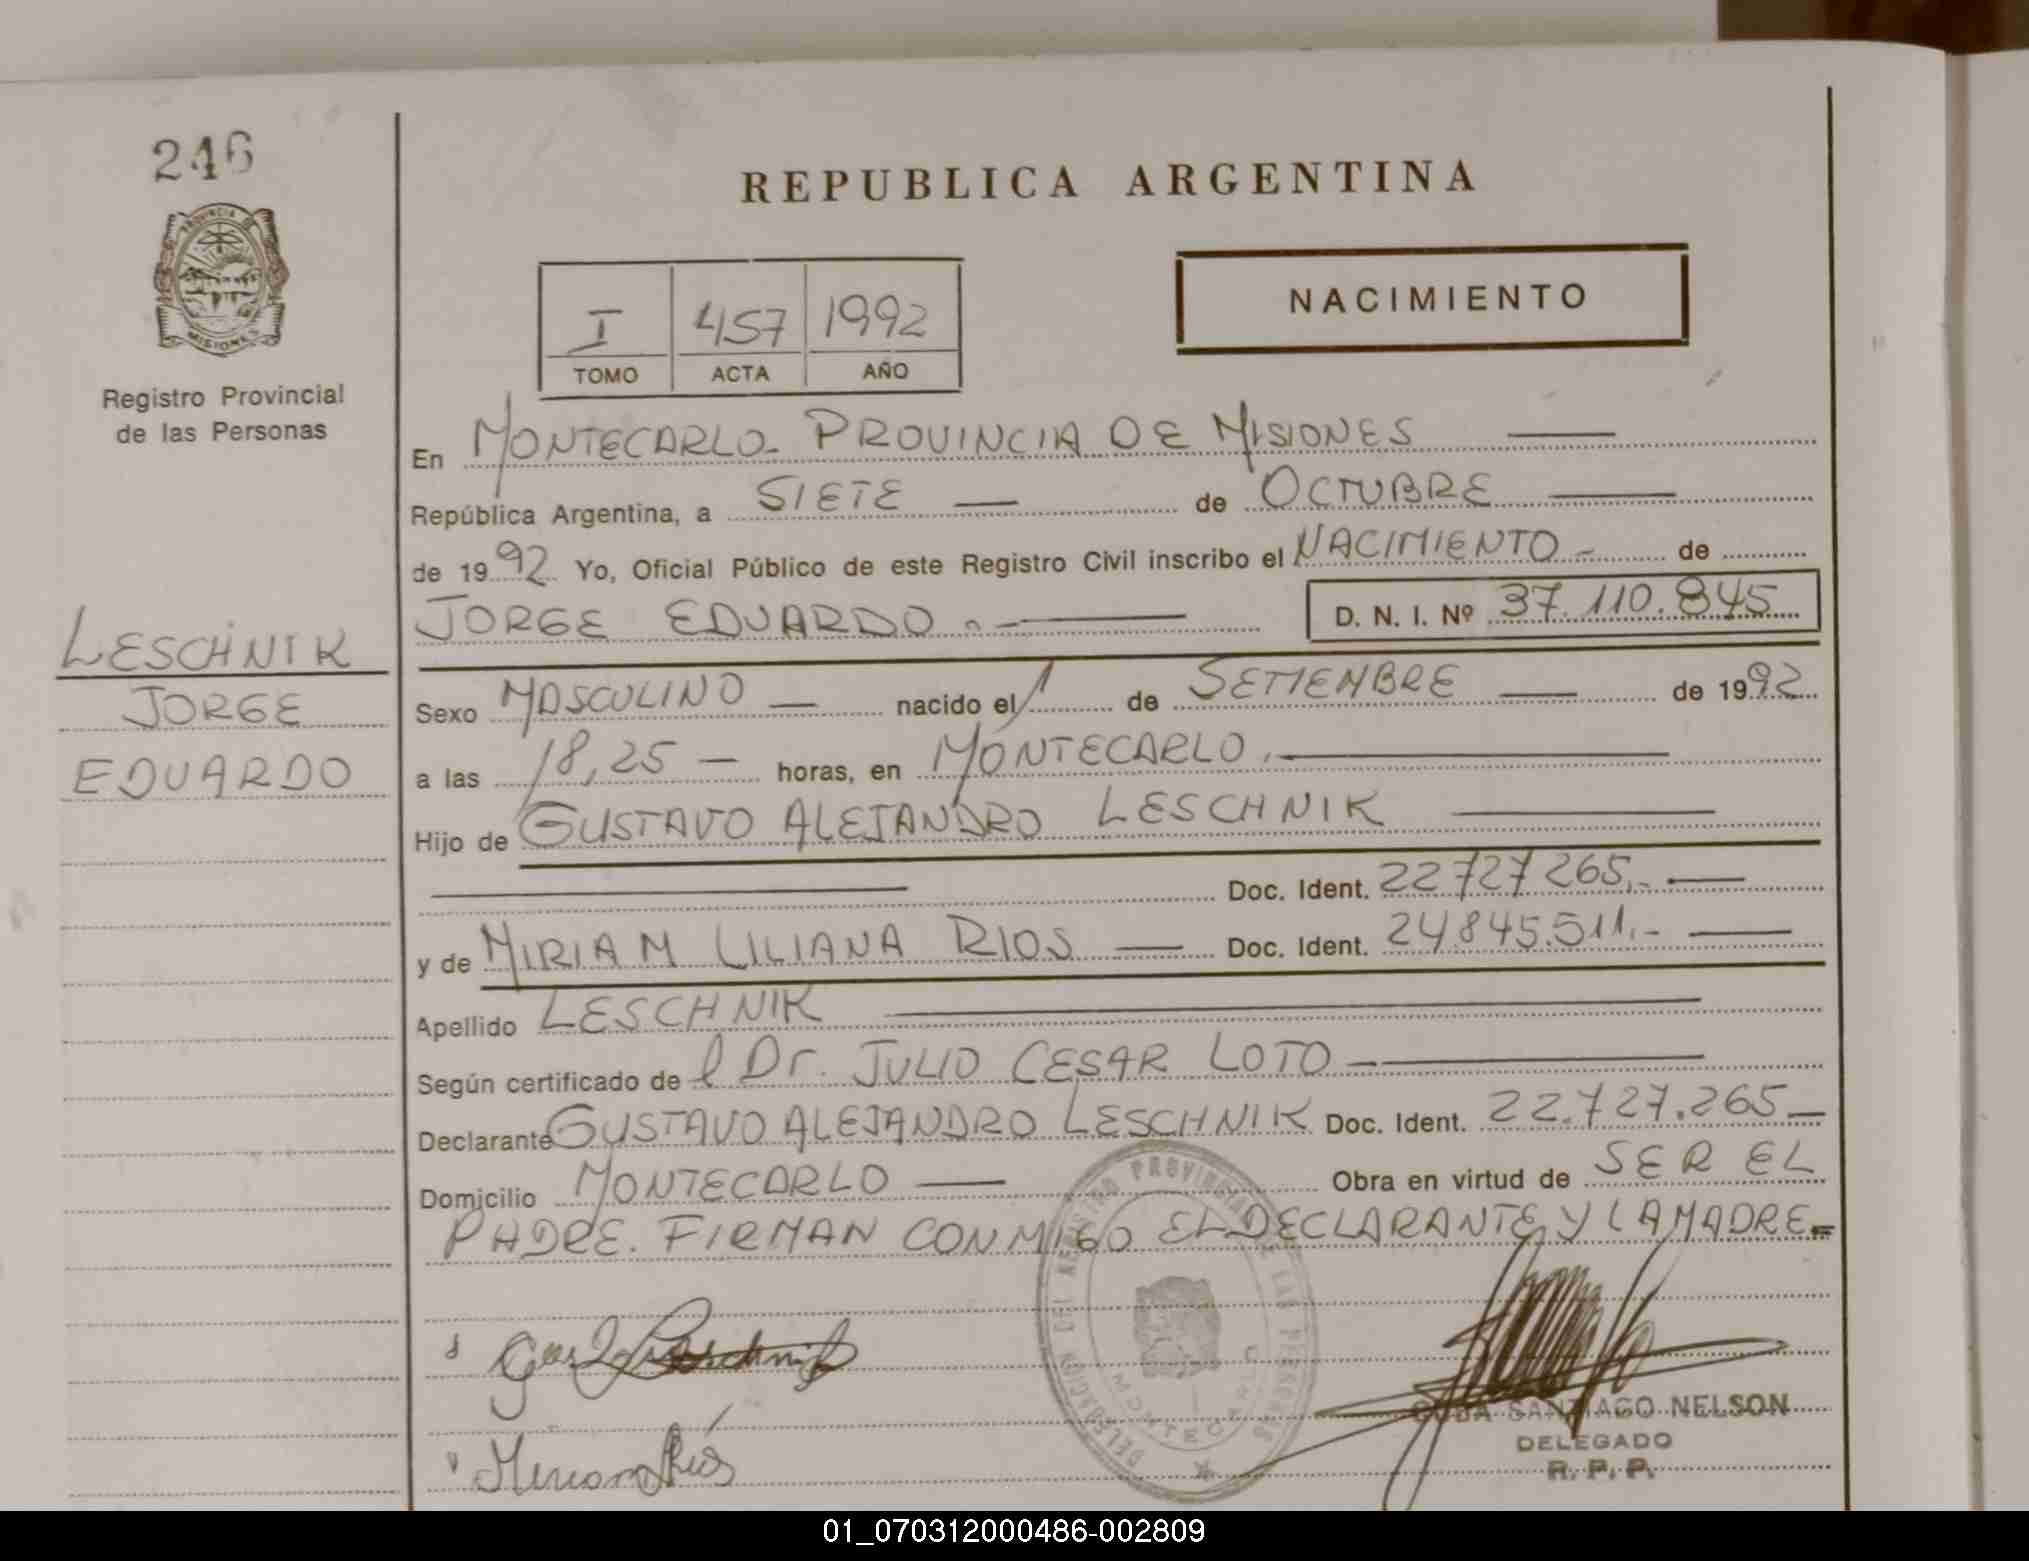 246
PROVINCIA DE
MISIONES
Registro Provincial
de las Personas
LESCHNIK
JORGE
EDUARDO
REPUBLICA ARGENTINA
I 457 1992
TOMO ACTA AÑO
NACIMIENTO
En MONTECARLO- PROVINCIA DE MISIONES
República Argentina, a SIETE — de OCTUBRE
de 1992 Yo, Oficial Público de este Registro Civil inscribo el NACIMIENTO - de
JORGE EDUARDO.- D. N. I. Nº 37.110.845
Sexo MASCULINO — nacido el 1 de SETIEMBRE — de 1992
a las 18,25 — horas, en MONTECARLO.
Hijo de GUSTAVO ALEJANDRO LESCHNIK
Doc. Ident. 22727265.-
y de MIRIAM LILIANA RIOS — Doc. Ident. 24.845.511.-
Apellido LESCHNIK
Según certificado de l Dr. JULIO CESAR LOTO
Declarante GUSTAVO ALEJANDRO LESCHNIK Doc. Ident. 22.727.265
Domicilio MONTECARLO — Obra en virtud de SER EL
PADRE. FIRMAN CONMIGO EL DECLARANTE Y LA MADRE.=
DELEGACION DEL REGISTRO PROVINCIAL DE LAS PERSONAS
MONTECARLO
Miriam Ríos
SANTIAGO NELSON
DELEGADO
R. P. P.
01_070312000486-002809